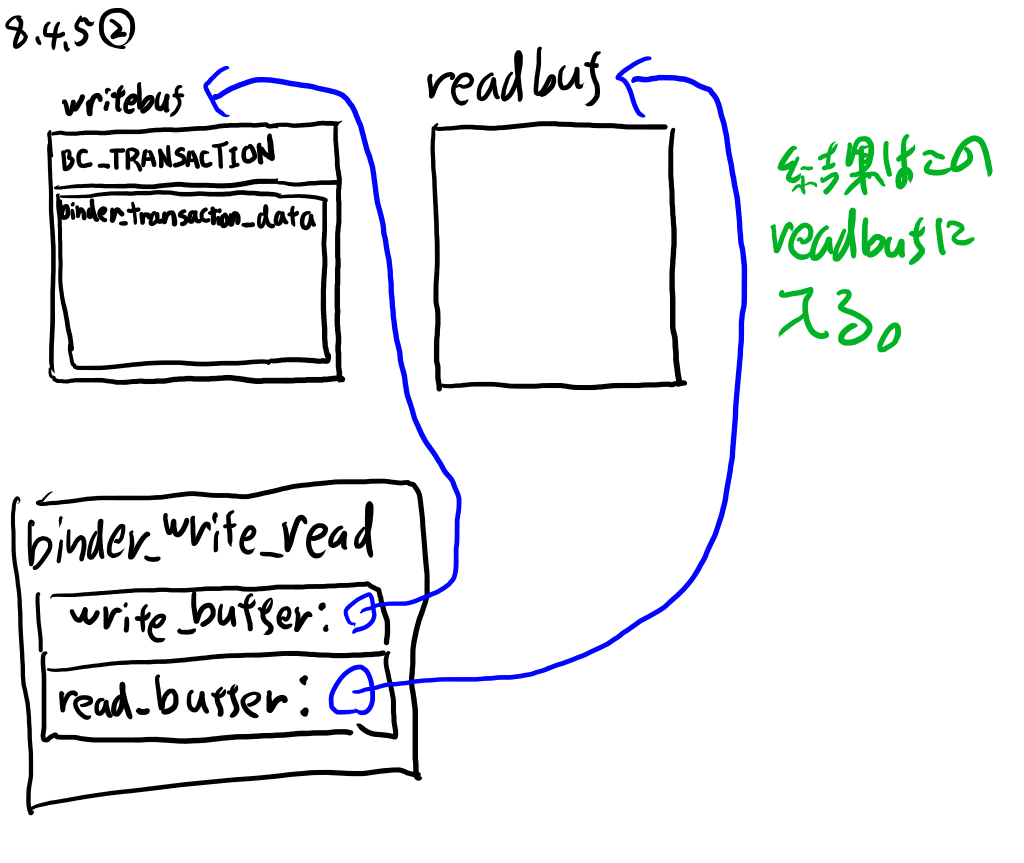 8.4.5②
writebuf
readbuf
BC_TRANSACTION
binder_transaction_data
結果はこの
readbufに
入る。
binder_write_read
write_buffer:
read_buffer: